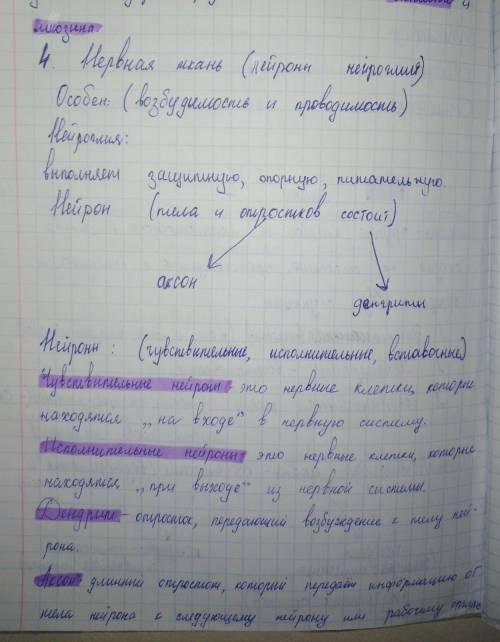 миозина
4. Нервная ткань (нейроны нейроглия)
Особен: (возбудимость и проводимость)
Нейроглия:
выполняет защитную, опорную, питательную.
Нейрон (тела и отростков состоит)
аксон
дентриты
Нейроны: (чувствительные, исполнительные, вставочные)
Чувствительные нейроны это нервные клетки, которые
находятся „на входе“ в нервную систему.
Исполнительные нейроны это нервные клетки, которые
находятся „при выходе“ из нервной системы.
Дендрит - отросток, передающий возбуждение к телу ней-
рона.
Аксон - длинный отросток, который передаёт информацию от
тела нейрона к следующему нейрону или рабочему